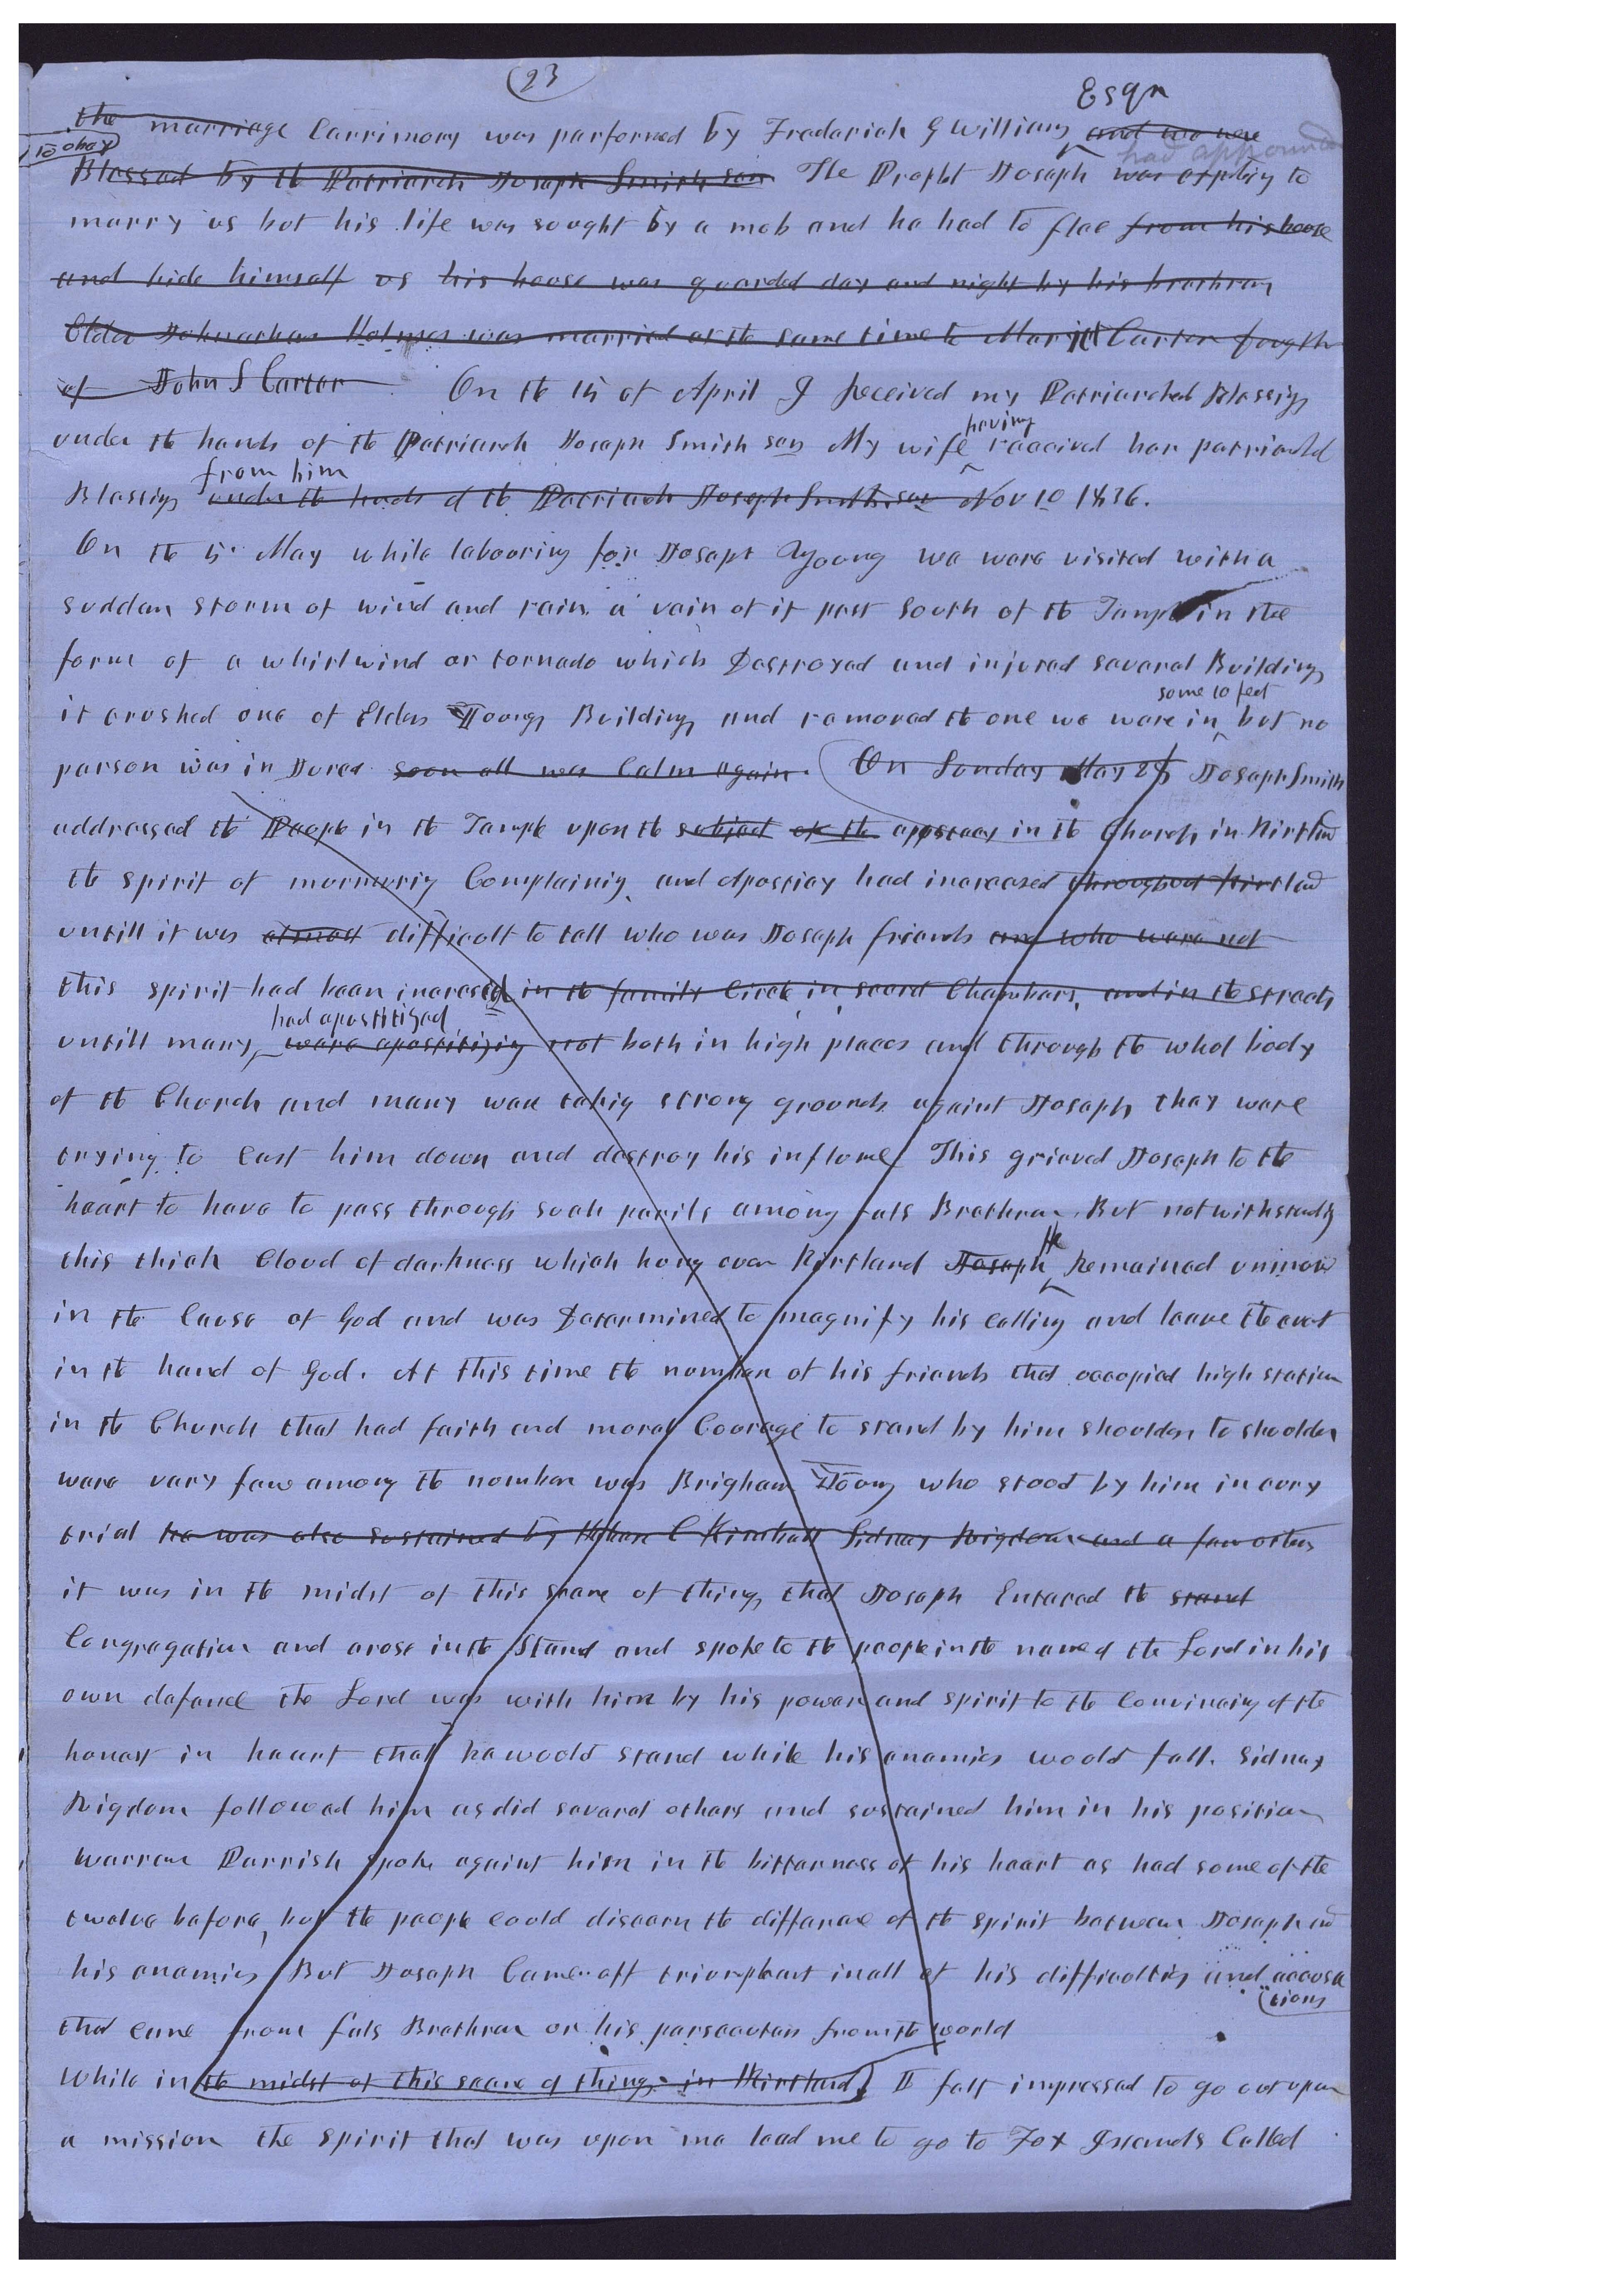 23
Esqr
the marriage Carrimony was parformed by Fredarick G Williams and we were
had appointed
Blessed by the Patriarch Joseph Smith sen The Prophet Joseph was expting to
marry us but his life was sought by a mob and he had to flee from his house
and hide himself as his house was guarded day and night by his brethren
Elder Johnathan Holmes was married at the same time to Mariett Carter
of John S Carter On the 15 of April I Received my Patriarchal Blessing
having
under the hands of the Patriarch Joseph Smith sen My wife received her patriarchal
from him
Blessing under the hands of the Patriarch Joseph Smith sen Nov 10 1836.
On the 5 May while labouring for Joseph Young we were visited with a
sudden storm of wind and rain a vain of it past South of the Temple in the
form of a whirlwind or tornado which Destroyed and injured several Buildings
some 10 feet
it crushed one of Elders Youngs Buildings and removed the one we were in but no
person was injured soon all was Calm again. On Sunday May 28 Joseph Smith
addressed the People in the Temple upon the subject of the apostacy in the Church in Kirtland
the spirit of murmuring Complaining and Apostacy had increased throughout Kirtland
untill it was almost difficult to tell who was Joseph friends and who were not
this spirit had been increased in the family Circle in secret Chambers, and in the streets
had apostitised
untill many were apostitizing not both in high places and through the whol body
of the Church and many ware taking strong grounds against Joseph they were
trying to Cast him down and destroy his influence This grieved Joseph to the
heart to have to pass through such perils among fals Brethren But notwithstanding
He
this thick Cloud of darkness which hung over Kirtland Joseph Remained unmovd
in the Cause of God and was Determined to magnify his calling and leave the event
in the hand of God. At this time the number of his friends that occupied high station
in the Church that had faith and moral Courage to stand by him shoulder to shoulder
were very few among the number was Brigham Young who stood by him in evry
trial he was also sustained by Heber C Kimball Sidney Rigdon and a few others
it was in the midst of this scene of things that Joseph Entered the stand
Congregation and arose in the Stand and spoke to the people in the name of the Lord in his
own defence the Lord was with him by his power and spirit to the Convincing of the
honest in heart that he would stand while his enemies would fall. Sidney
Rigdom followed him as did several others and sustained him in his position
Warren Parrish spoke against him in the bitterness of his heart as had some of the
twelve before, but the people could discern the difference of the spirit between Joseph and
his enemies But Joseph Came off triumphant in all of his difficulties and accusa
tions
that came from fals Brethren or his persecuters from the world
While in the midst of this scene of things in Kirtland I felt impressed to go out upon
a mission the spirit that was upon me lead me to go to Fox Islands Called